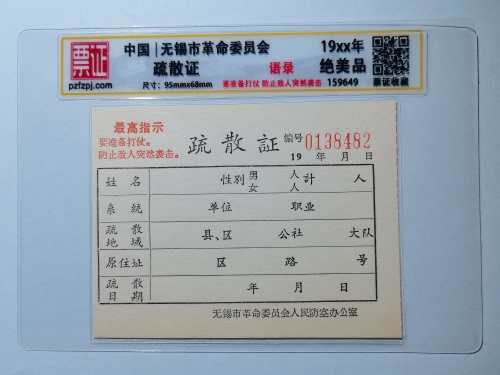 票证
pzfzpj.com
中国|无锡市革命委员会
疏散证
尺寸：95mmx68mm
语录
要准备打仗 防止敌人突然袭击
19xx年
绝美品
159649
票证收藏
最高指示
要准备打仗。
防止敌人突然袭击。
疏散証 編号 0138482
19 年 月 日
姓名 性别 男 女 人 人 計 人
系統 单位 职业
疏散地域 县、区 公社 大队
原住址 区 路 号
疏散日期 年 月 日
无锡市革命委员会人民防空办公室